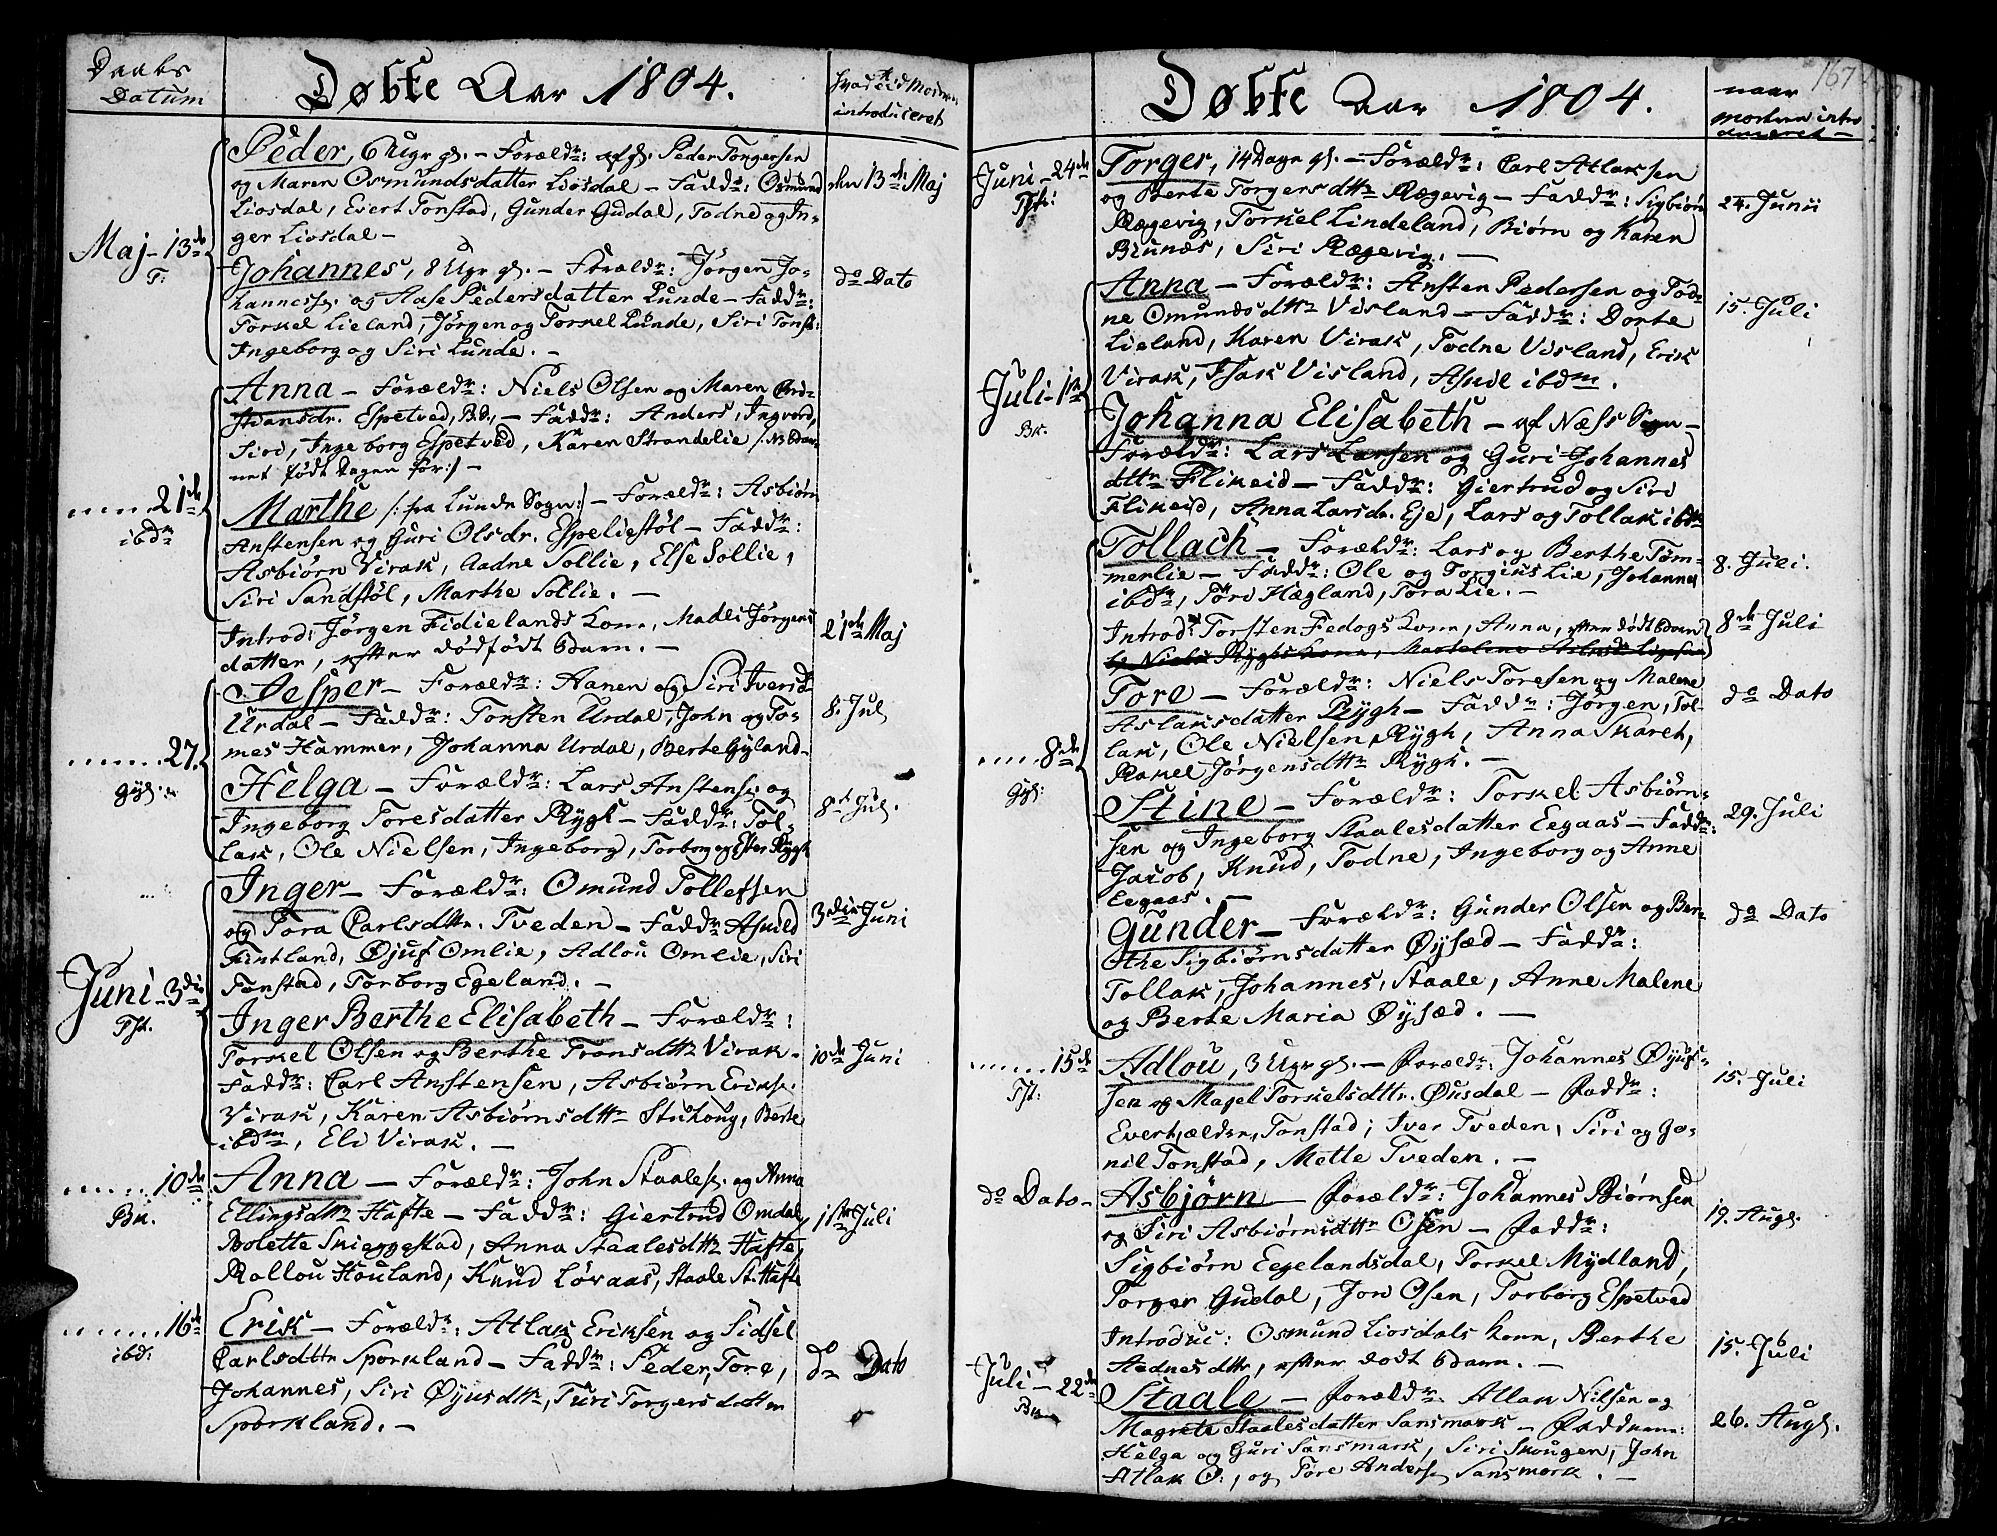 Daabs
Datum
Døbte Aar 1804.
hvad Tid Moderen
introduceret
Peder, 6 Ugr gl. – Forældr: afgl. Peder Torgersen
og Maren Osmundsdatter Liosdal – Faddr: Osmund
Liosdal, Evert Tonstad, Gunder Gudal, Todne og In-
ger Liosdal –
den 13de Maj
Maj – 13de
T.
Johannes, 8 Ugr gl. – Forældr: Jørgen Jo-
hanness. og Aase Pedersdatter Lunde – Faddr:
Torkel Lieland, Jørgen og Torkel Lunde, Siri Tonst:
Ingeborg og Siri Lunde. –
do Dato
Anna – Forældr: Niels Olsen og Maren Chri-
stiansdr. Espetved, – Faddr: Anders, Ingvord,
Siri, Ingeborg Espetved, Karen Strandelie /: NB Bar-
net født Dagen før :/ –
21de
ibdm
Marthe /: fra Lunde Sogn :/ – Forældr: Asbiørn
Anstensen og Guri Olsdr. Espeliestøl – Faddr:
Asbiørn Virak, Aadne Sollie, Else Sollie,
Siri Sandstøl, Marthe Sollie. –
Introd: Jørgen Fidielands Kone, Madli Jørgens
datter, efter dødfødt Barn. –
21de Maj
Jesper – Forældr: Aanen og Siri Iversd.
Urdal – Faddr: Torsten Urdal, John og To-
mes Hammer, Johanna Urdal, Berte Gyland –
8. Jul
27.
Gyl.
Helga – Forældr: Lars Anstens. og
Ingeborg Toresdatter Rygh – Faddr: Tol-
lak, Ole Nielsen, Ingeborg, Torborg og Ester Rygh
8d Jul.
Inger – Forældr: Omund Tollefsen
og Tora Carlsdttr. Tveden – Faddr: Asuld
Fintland, Øjuf Omlie, Adlou Omlie, Siri
Tonstad, Torborg Egeland. –
3die Juni
Juni – 3die
Tst.
Inger Berthe Elisabeth – Forældr:
Torkel Olsen og Berthe Tronsdttr Virak –
Faddr: Carl Anstensen, Asbiørn Eriks.
Virak, Karen Asbiørnsdttr Stukong, Berte
ibdm, Eli Virak. –
10de Juni
10de
Bk.
Anna – Forældr: John Staales. og Anna
Ellingsdttr Hafte – Faddr: Giertrud Omdal,
Bolette Skieggestad, Anna Staalesdttr Hafte,
Rallou Houland, Knud Løvaas, Staale St. Hafte
1ste Juli
16de
ibd:
Erik – Forældr: Atlak Eriksen og Sidsel
Carlsdttr Sporkland – Faddr: Peder, Tore,
Johannes, Siri Øyusdttr, Turi Torgersdatter
Sporkland. –
do Dato
167
Døbte Aar 1804.
naar
Moderen intro
duceret –
Juni – 24de
Tst:
Torger, 14 Dage gl. – Forældr: Carl Atlaksen
og Berte Torgersdttr Rægevig – Faddr: Sigbiørn
Rægevig, Torkel Lindeland, Biørn og Karen
Biunes, Siri Rægevig. –
24. Junii
Anna – Forældr: Ansten Pedersen og Tod-
ne Omundsdttr Visland – Faddr: Dorte
Lieland, Karen Virak, Todne Visland, Erik
Virak, Isak Visland, Asuil ibdm.
15. Juli
Juli – 1ste
Bk.
Johanna Elisabeth – af Næss Sogn –
Forældr: Lars Larsen og Guri Johannes
dttr Flikeid – Faddr: Giertrud og Siri
Flikeid, Anna Larsdr. Eje, Lars og Tollak ibdm
Tollach – Forældr: Lars og Berthe Tøm-
merlie – Faddr: Ole og Torgius Lie, Johanna
ibdm, Tøri Hægland, Tora Lie. –
8. Juli.
Introd: Torsten Fedogs Kone, Anna, efter dødt Barn
8de Juli
Tore – Forældr: Niels Toresen og Malene
Aslaksdatter Rygh – Faddr: Jørgen, Tol-
lak, Ole Nielsen Rygh, Anna Skaret,
Rakel Jørgensdttr Rygh. –
do Dato
8de
Gyl:
Stine – Forældr: Torkel Asbiørn-
sen og Ingeborg Staalesdatter Eegaas – Faddr:
Jacob, Knud, Todne, Ingeborg og Anne
Eegaas. –
29. Juli
Gunder – Forældr: Gunder Olsen og Ber-
the Sigbiørnsdatter Øysæd – Faddr:
Tollak, Johannes, Staale, Anne Malene
og Berte Maria Øysæd. –
do Dato
15de
Tst:
Adlou, 3 Ugr gl. – Forældr: Johannes Øyuf-
sen og Magel Torkelsdttr. Øusdal – Faddr:
Evert, ældre, Tonstad; Iver Tveden, Siri og Go-
nil Tonstad, Mette Tveden. –
15. Juli
do Dato –
Asbjørn – Forældr: Johannes Biørnsen
og Siri Asbiørnsdttr Osen – Faddr:
Sigbiørn Eegelandsdal, Torkel Mydland,
Torger Gudal, Jon Osen, Torborg Espetved
19. Augs.
Introduc: Osmund Liosdals Kone, Berthe
Aadnesdttr, efter dødt Barn. –
15. Juli
Juli – 22de
Bk
Staale – Forældr: Atlak Nilsen og
Magrete Staalesdatter Sansmark – Faddere:
Helga og Guri Sansmark, Siri Skougen, John
Atlak O:, og Tore Anders. Sansmark. –
26. Augs.